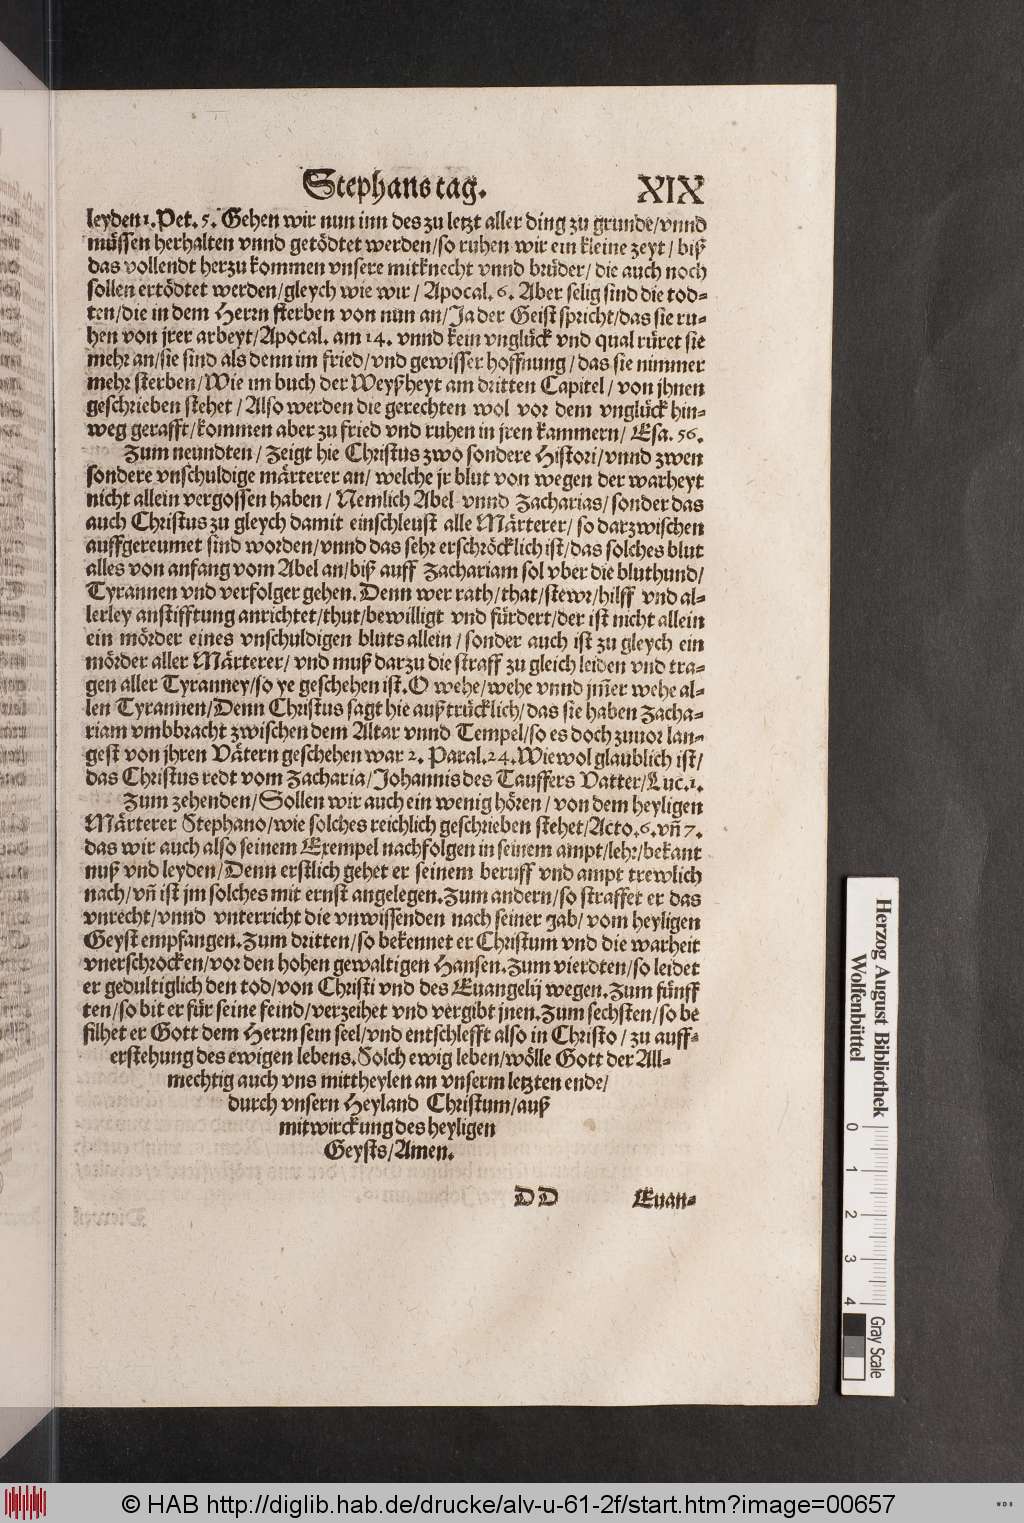 Stephans tag. XIX
leyden 1. Pet. 5. Gehen wir nun inn des zu letzt aller ding zu grunde/vnnd
müssen herhalten vnnd getödtet werden/so ruhen wir ein kleine zeyt/ biß
das vollendt herzu kommen vnsere mitknecht vnnd brüder/ die auch noch
sollen ertödtet werden/gleych wie wir/ Apocal. 6. Aber selig sind die tod-
ten/die in dem Herrn sterben von nun an/Ja der Geist spricht/das sie ru-
hen von jrer arbeyt/Apocal. am 14. vnnd kein vnglück vnd qual rüret sie
mehr an/sie sind als denn im fried/vnd gewisser hoffnung/das sie nimmer
mehr sterben/Wie im buch der Weyßheyt am dritten Capitel/ von jhnen
geschrieben stehet/Also werden die gerechten wol vor dem vnglück hin-
weg gerafft/kommen aber zu fried vnd ruhen in jren kammern/ Esa. 56.
Zum neundten/ Zeigt hie Christus zwo sondere Histori/vnnd zwen
sondere vnschuldige märterer an/ welche jr blut von wegen der warheyt
nicht allein vergossen haben/ Nemlich Abel vnnd Zacharias/sonder das
auch Christus zu gleych damit einschleust alle Märterer/ so darzwischen
auffgereumet sind worden/vnnd das sehr erschröcklich ist/das solches blut
alles von anfang vom Abel an/biß auff Zachariam sol vber die bluthund/
Tyrannen vnd verfolger gehen. Denn wer rath/that/stewr/hilff vnd al-
lerley anstifftung anrichtet/thut/bewilligt vnd fürdert/der ist nicht allein
ein mörder eines vnschuldigen bluts allein/sonder auch ist zu gleych ein
mörder aller Märterer/ vnd muß darzu die straff zu gleich leiden vnd tra-
gen aller Tyranney/so ye geschehen ist. O wehe/wehe vnnd jm̃er wehe al-
len Tyrannen/Denn Christus sagt hie außtrücklich/das sie haben Zacha-
riam vmbbracht zwischen dem Altar vnnd Tempel/so es doch zuuor lan-
gest von jhren Vätern geschehen war 2. Paral. 24. Wiewol glaublich ist/
das Christus redt vom Zacharia/Johannis des Tauffers Vatter/Luc. 1.
Zum zehenden/Sollen wir auch ein wenig hören/von dem heyligen
Märterer Stephano/wie solches reichlich geschrieben stehet/Acto. 6. vñ 7.
das wir auch also seinem Exempel nachfolgen in seinem ampt/lehr/bekant
nuß vnd leyden/Denn erstlich gehet er seinem beruff vnd ampt trewlich
nach/vñ ist jm solches mit ernst angelegen. Zum andern/so straffet er das
vnrecht/vnnd vnterricht die vnwissenden nach seiner gab/ vom heyligen
Geyst empfangen. Zum dritten/so bekennet er Christum vnd die warheit
vnerschrocken/vor den hohen gewaltigen Hansen. Zum vierdten/so leidet
er gedultiglich den tod/von Christi vnd des Euangelij wegen. Zum fünff
ten/so bit er für seine feind/verzeihet vnd vergibt jnen. Zum sechsten/so be
filhet er Gott dem Herrn sein seel/vnd entschlefft also in Christo/ zu auff-
erstehung des ewigen lebens. Solch ewig leben/wölle Gott der All-
mechtig auch vns mittheylen an vnserm letzten ende/
durch vnsern Heyland Christum/auß
mitwirckung des heyligen
Geysts/Amen.
DD Euan-
Herzog August Bibliothek
Wolfenbüttel
0 1 2 3 4
Gray Scale
© HAB http://diglib.hab.de/drucke/alv-u-61-2f/start.htm?image=00657